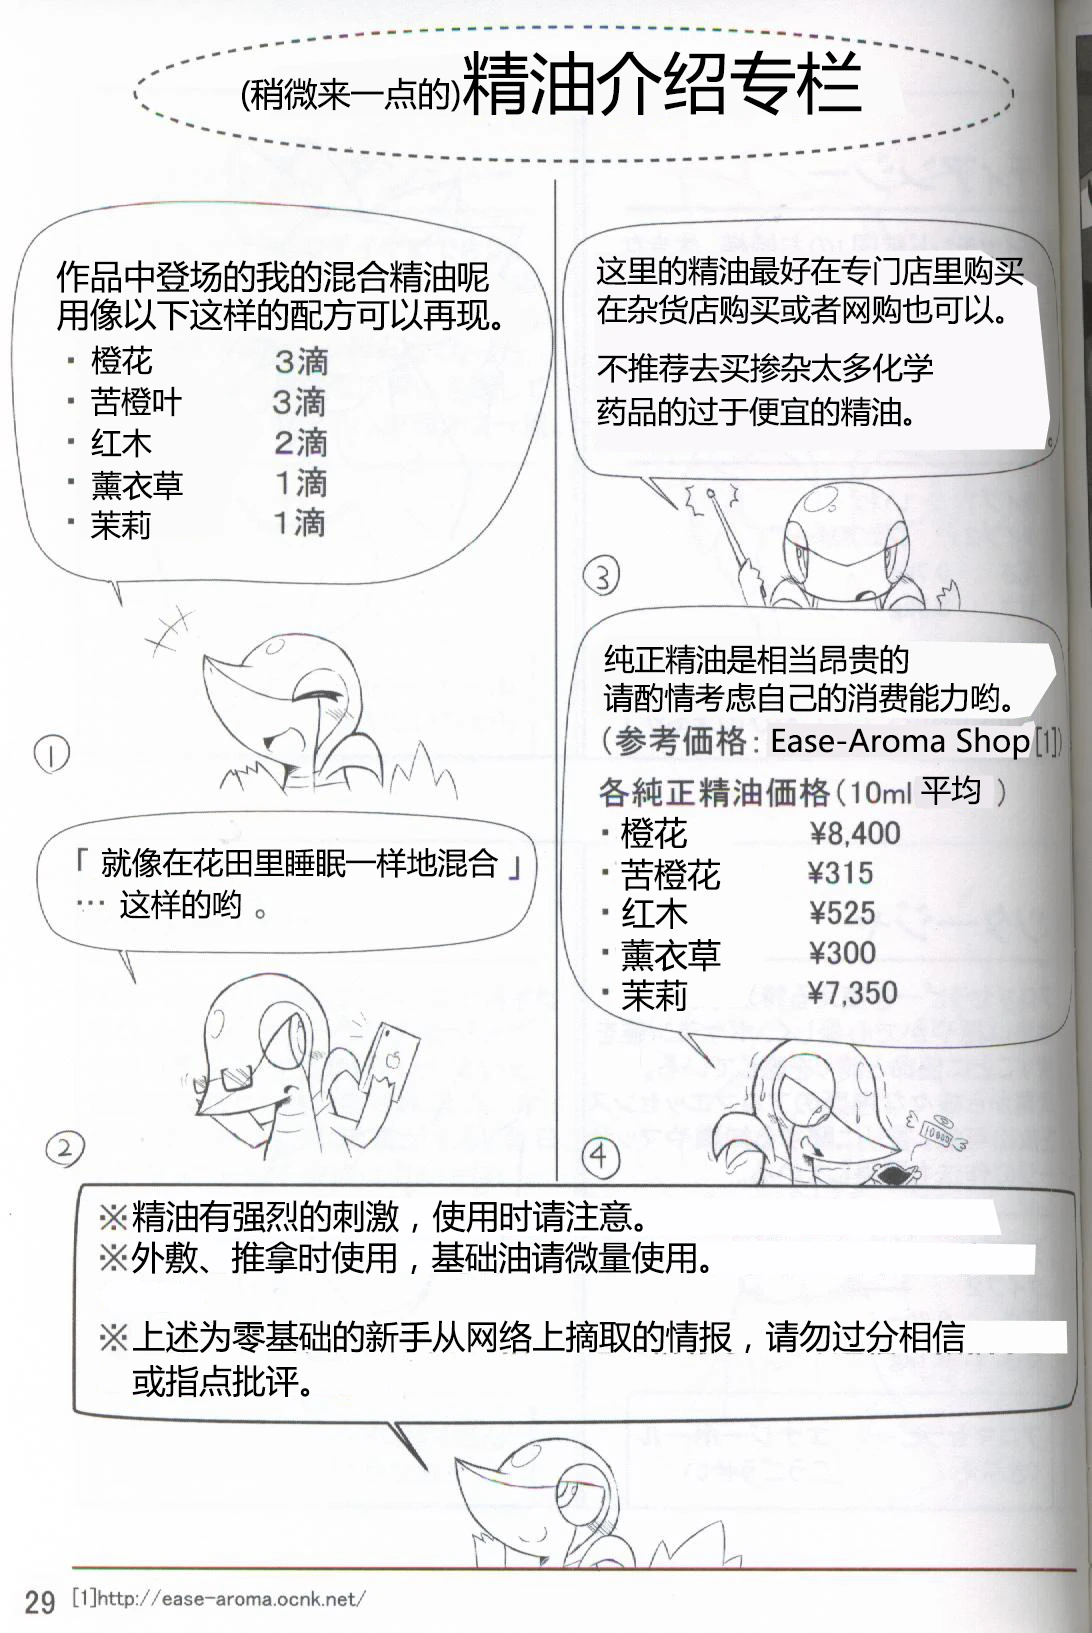 (稍微来一点的)精油介绍专栏
作品中登场的我的混合精油呢
用像以下这样的配方可以再现。
・橙花 3滴
・苦橙叶 3滴
・红木 2滴
・薰衣草 1滴
・茉莉 1滴
①
「就像在花田里睡眠一样地混合」
…这样的哟。
②
这里的精油最好在专门店里购买
在杂货店购买或者网购也可以。
不推荐去买掺杂太多化学
药品的过于便宜的精油。
③
纯正精油是相当昂贵的
请酌情考虑自己的消费能力哟。
(参考価格:Ease-Aroma Shop[1])
各純正精油価格(10ml平均)
・橙花 ¥8,400
・苦橙花 ¥315
・红木 ¥525
・薰衣草 ¥300
・茉莉 ¥7,350
10000
④
※精油有强烈的刺激，使用时请注意。
※外敷、推拿时使用，基础油请微量使用。
※上述为零基础的新手从网络上摘取的情报，请勿过分相信
或指点批评。
29 [1]http://ease-aroma.ocnk.net/